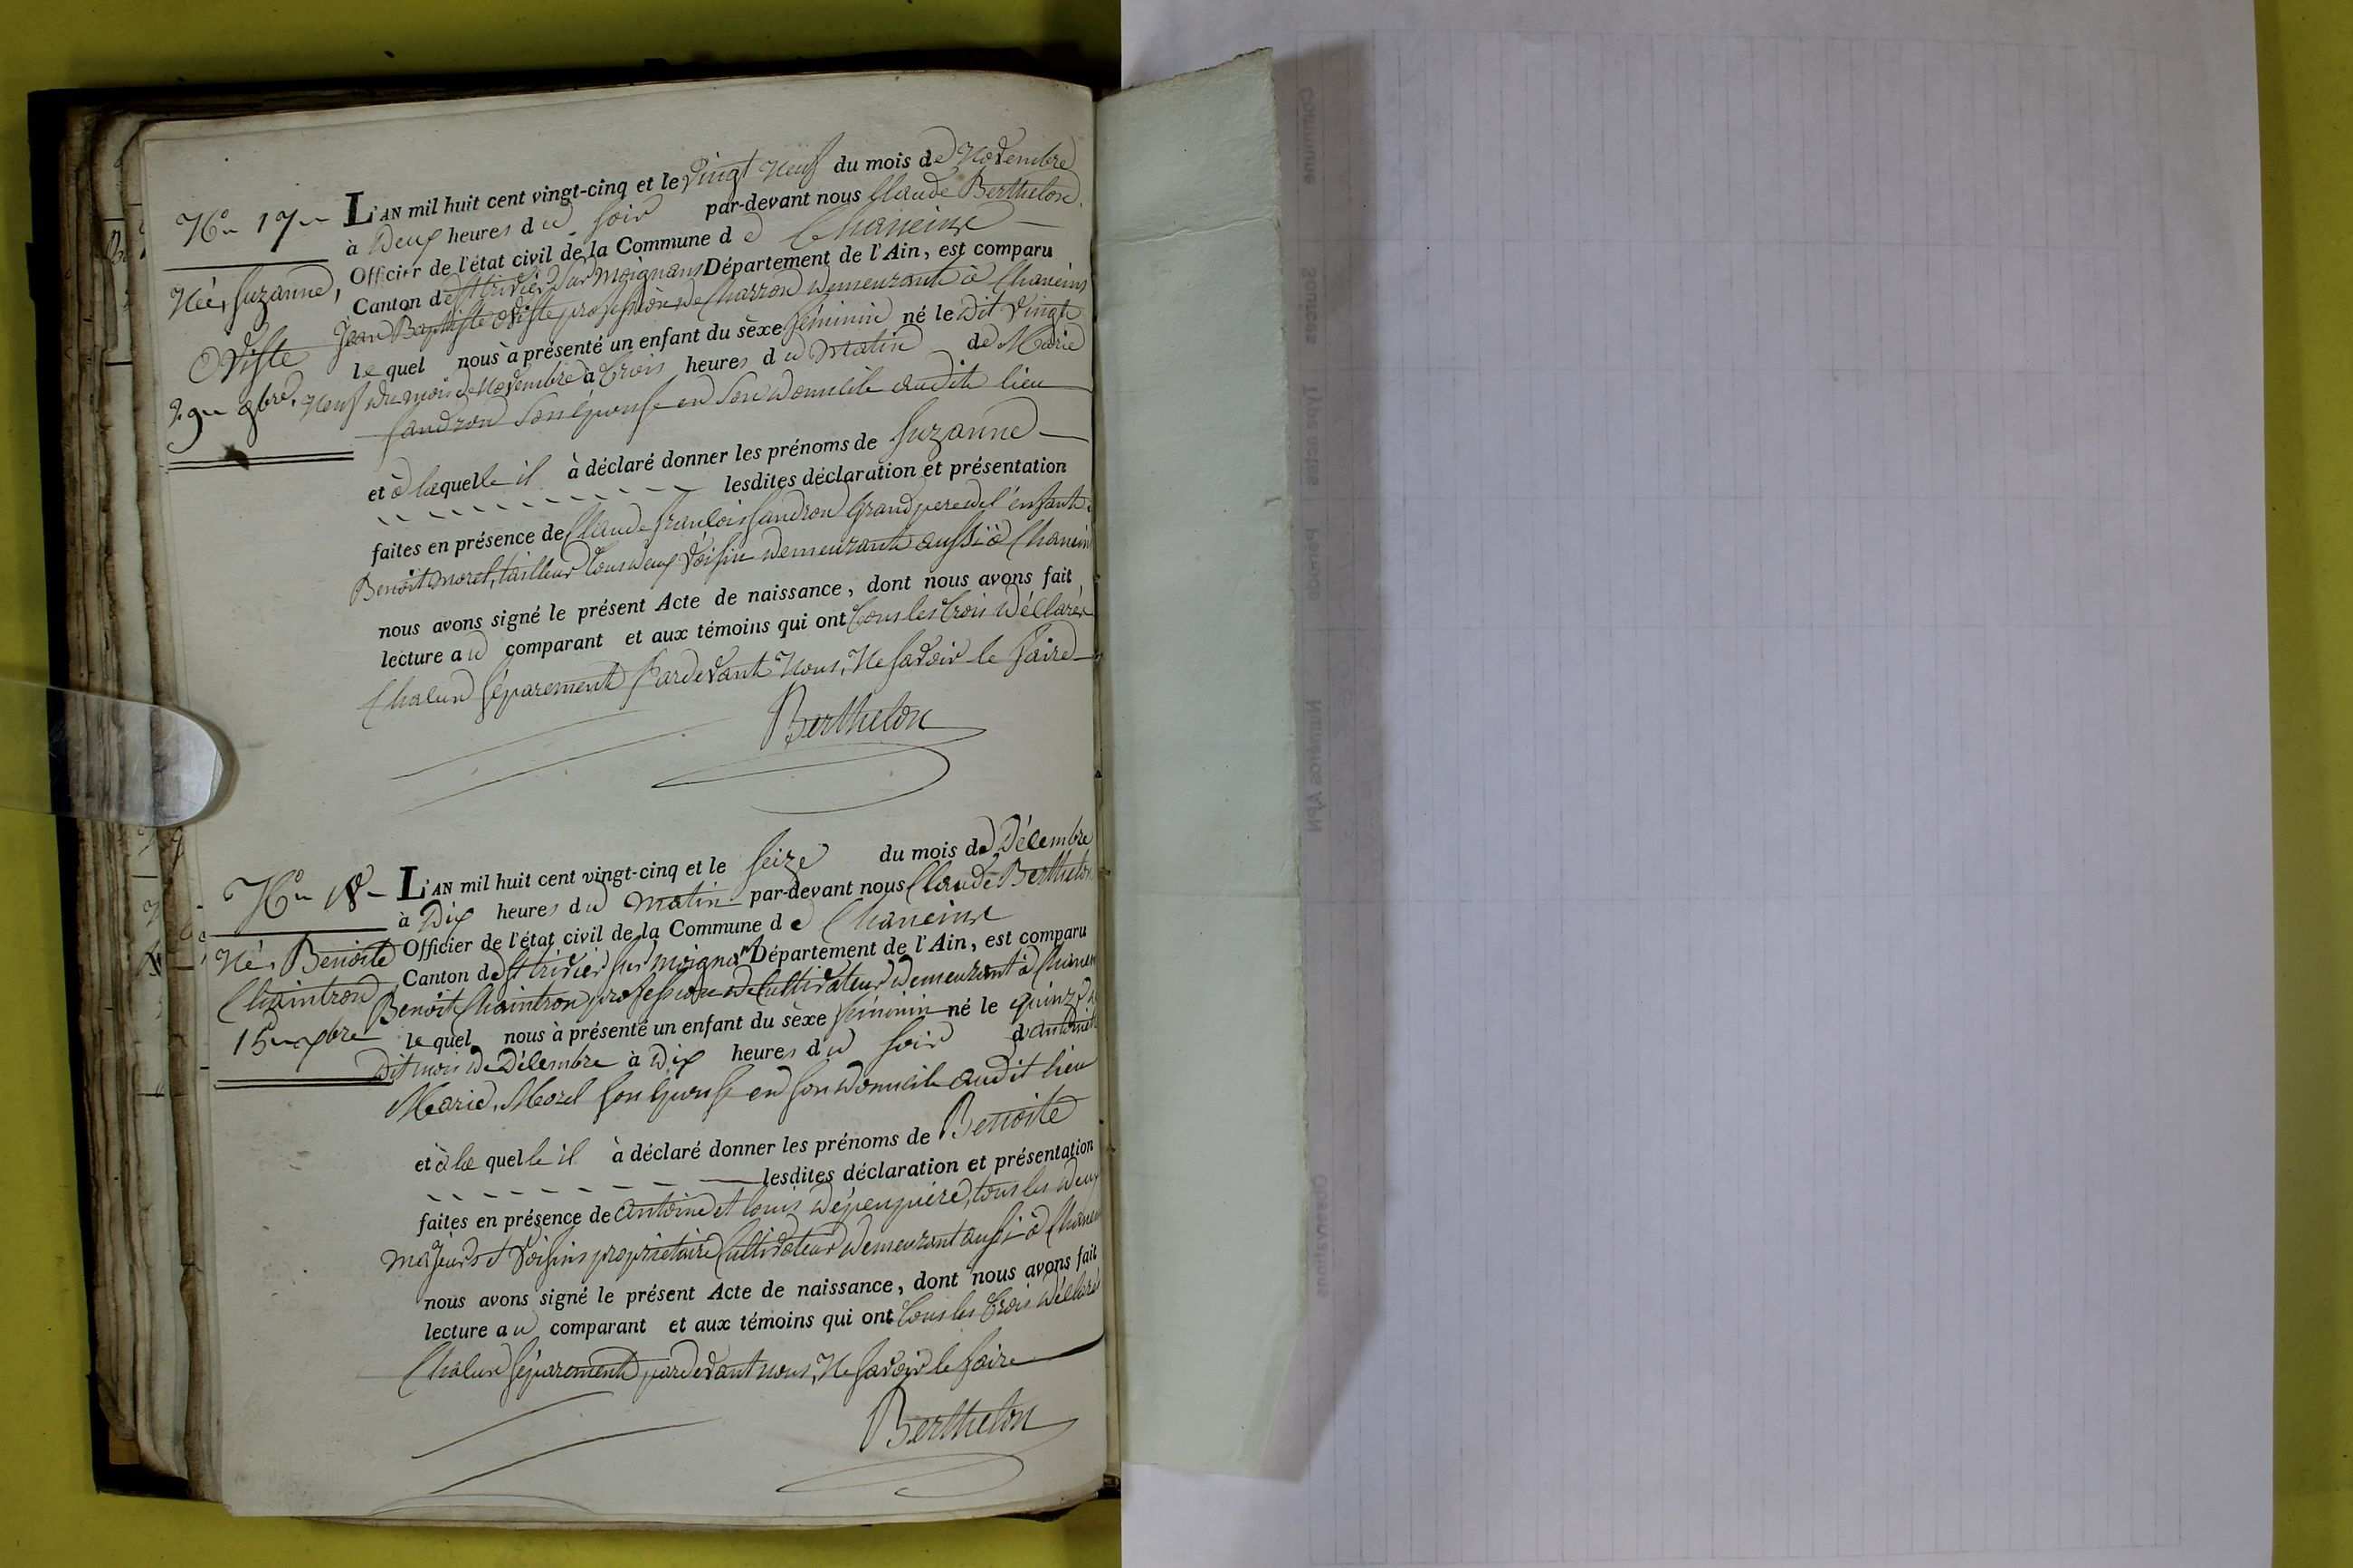 No 17
Née, Suzanne,
Oviste
29 9bre
L'AN mil huit cent vingt-cinq et le vingt Neuf du mois de Novembre
à Deux heures du soir par-devant nous Claude Berthelon
Officier de l'état civil de la Commune de Chaneins
Canton de St trivier sur moignans Département de l'Ain, est comparu
Jean Baptiste Oviste profession de Charron demeurant à Chaneins
lequel nous à présenté un enfant du sèxe féminin né le dit vingt
Neuf du mois de Novembre à trois heures du matin de Marie
Sandron son épouse en son domicile audit lieu
et à laquelle il à déclaré donner les prénoms de Suzanne
lesdites déclaration et présentation
faites en présence de Claude françois Sandron Grand pere de l'enfant
Benoit morel, tailleur tous deux voisin demeurant aussi à Chaneins
nous avons signé le présent Acte de naissance, dont nous avons fait
lecture au comparant et aux témoins qui ont tous les trois déclarés
Chacun séparement Pardevant Nous, Ne savoir le faire
Berthelon
No 18
Né, Benoite
Chaintron
15 xbre
L'AN mil huit cent vingt-cinq et le seize du mois de Décembre
à Dix heures du matin par-devant nous Claude Berthelon
Officier de l'état civil de la Commune de Chaneins
Canton de St trivier sur moignans Département de l'Ain, est comparu
Benoit Chaintron profession de Cultivateur demeurant à Chanein
lequel nous à présenté un enfant du sèxe féminin né le quinze
Dit mois de Décembre à Dix heures du soir d'antoinette
Marie, Morel son épouse en son domicile audit lieu
et à laquelle il à déclaré donner les prénoms de Benoite
lesdites déclaration et présentation
faites en présence de antoine et louis tous les deux
majeurs et voisins proprietaire Cultivateur demeurant aussi à Chanein
nous avons signé le présent Acte de naissance, dont nous avons fait
lecture au comparant et aux témoins qui ont tous les trois déclarés
Chacun séparement pardevant nous, Ne savoir le faire
Berthelon